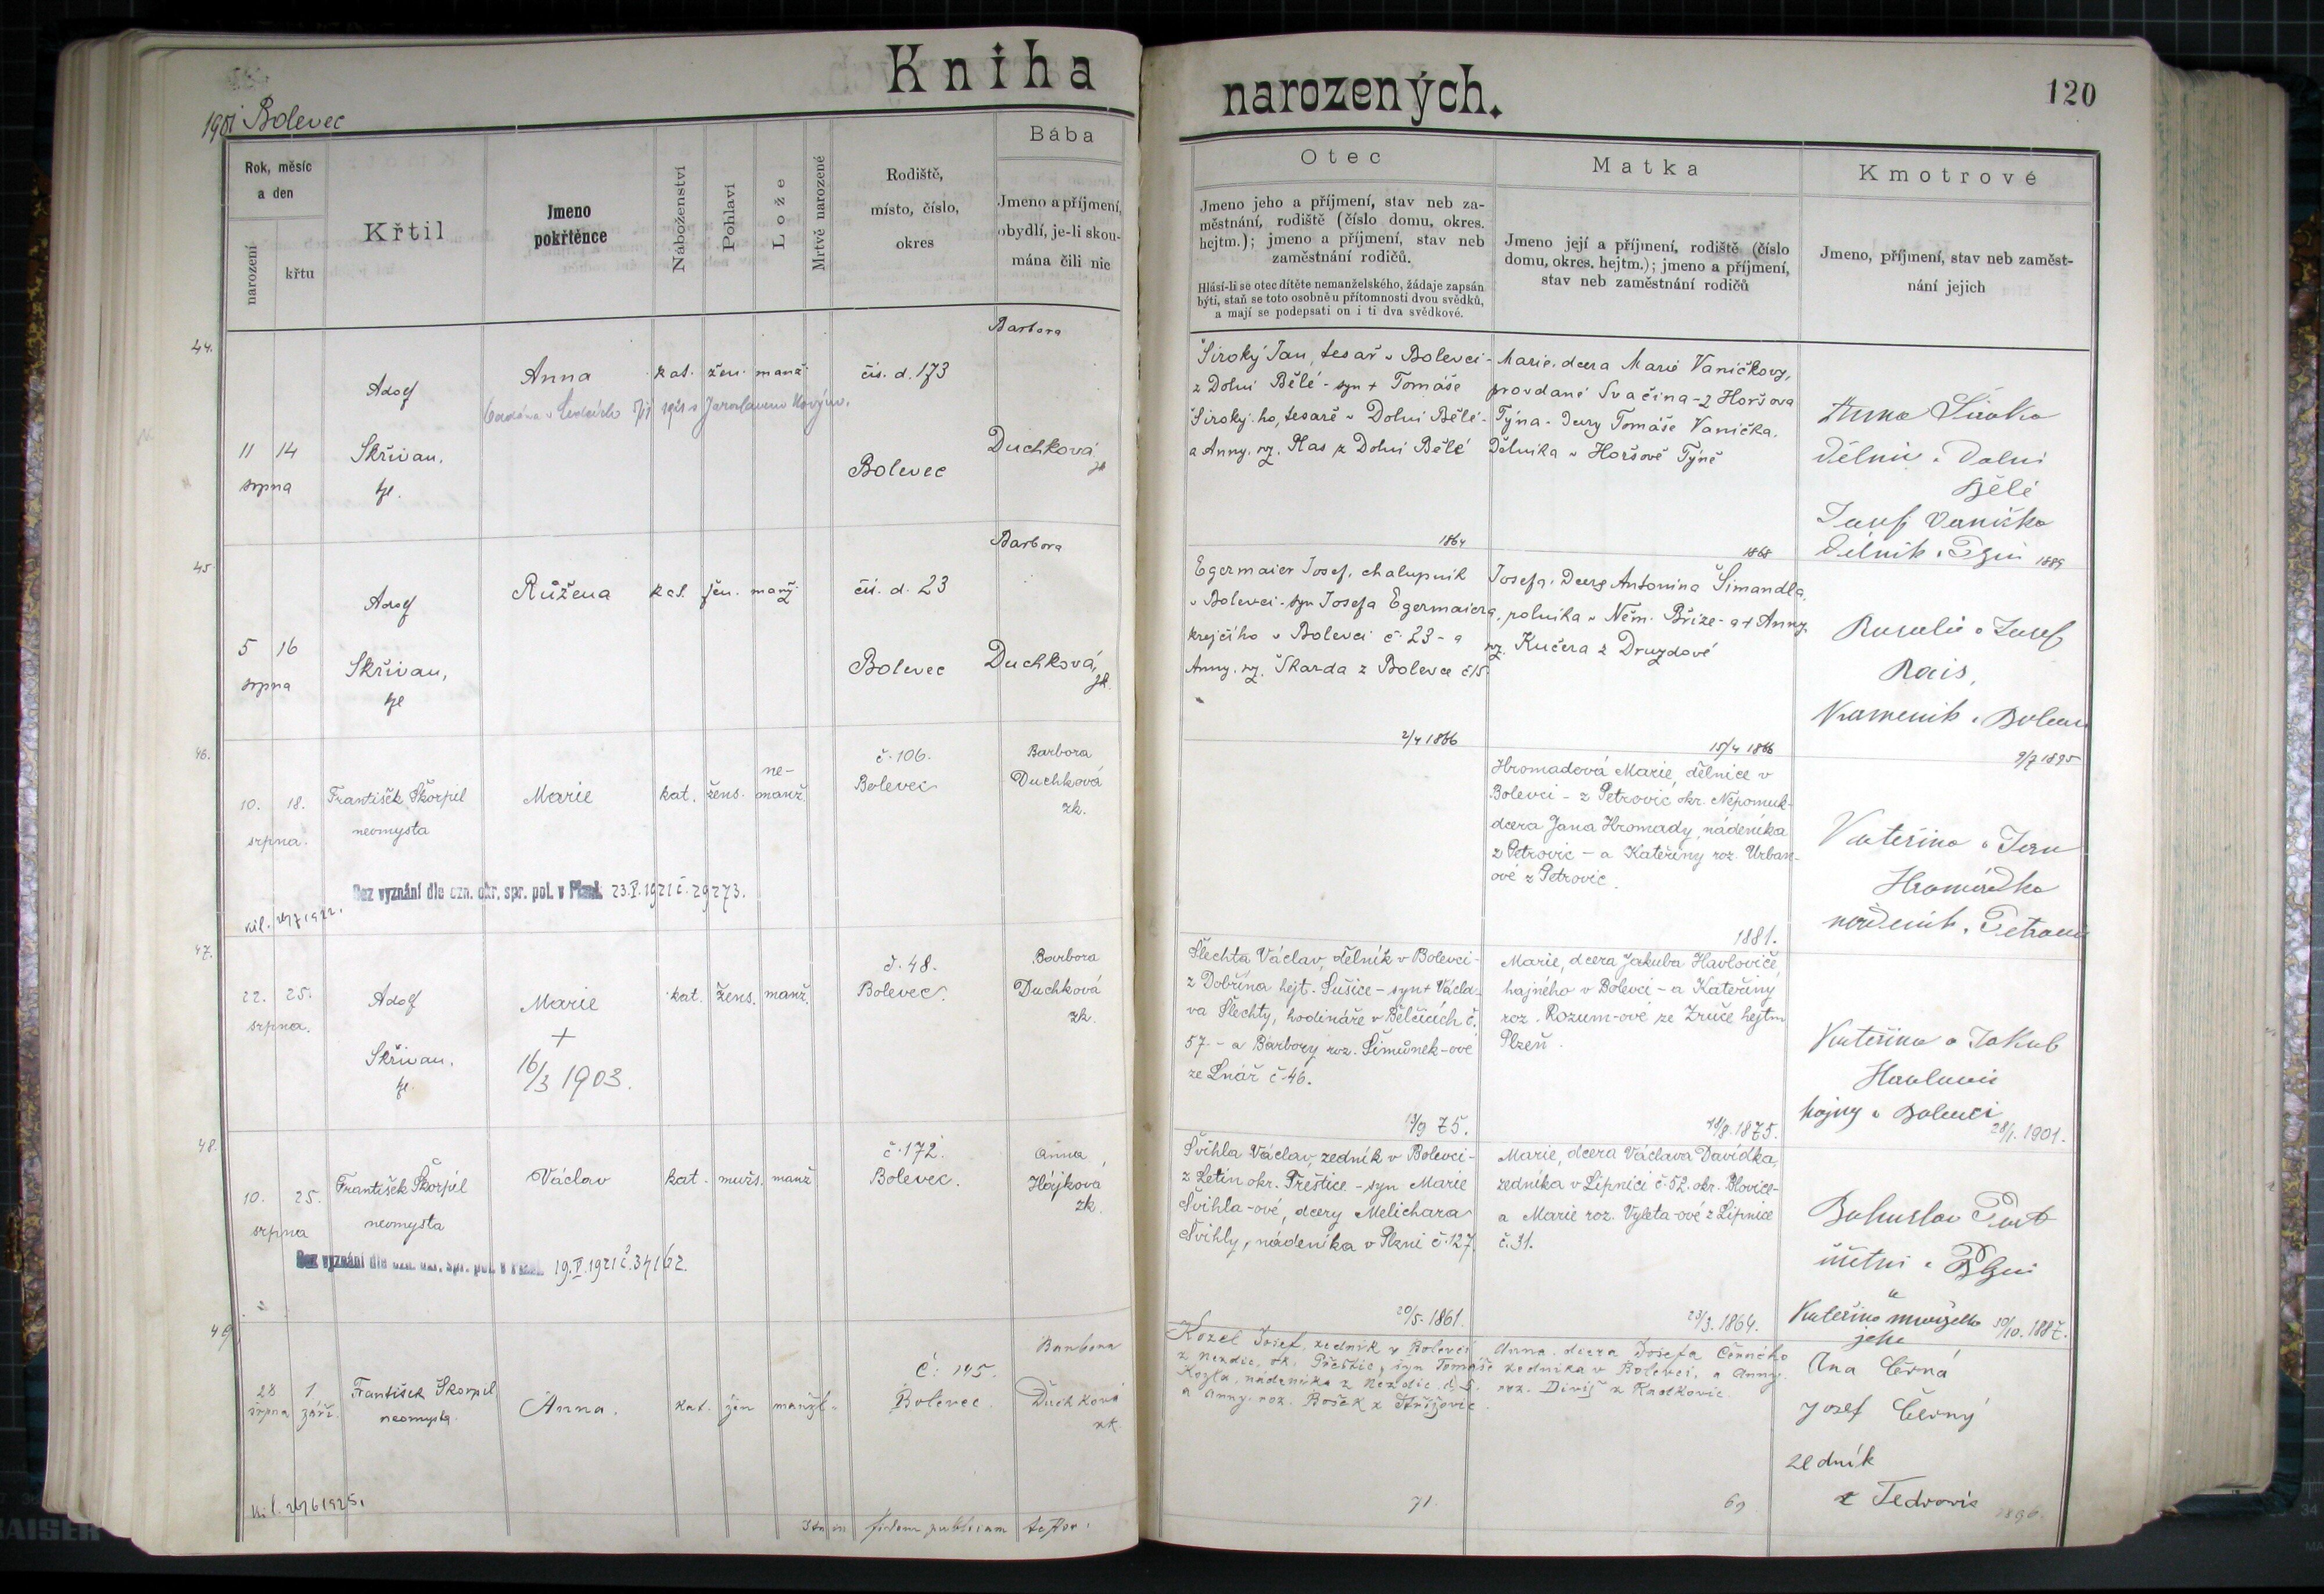 Kniha
narozených.
120
1901 Bolevec
Rok, měsíc
a den
narození
křtu
Křtil
Jmeno
pokřtěnce
Náboženství
Pohlaví
Lože
Mrtvě narozené
Rodiště,
místo, číslo,
okres
Bába
Jmeno a příjmení,
obydlí, je-li skou-
mána čili nic
Otec
Jmeno jeho a příjmení, stav neb za-
městnání, rodiště (číslo domu, okres.
hejtm.); jmeno a příjmení, stav neb
zaměstnání rodičů.
Hlásí-li se otec dítěte nemanželského, žádaje zapsán
býti, staň se toto osobně u přítomnosti dvou svědků,
a mají se podepsati on i ti dva svědkové.
Matka
Jmeno její a příjmení, rodiště (číslo
domu, okres. hejtm.); jmeno a příjmení,
stav neb zaměstnání rodičů
Kmotrové
Jmeno, příjmení, stav neb zaměst-
nání jejich
44.
11 14
srpna
Adolf
Skřivan,
Anna
kat. žen. manž.
čís. d. 173
Bolevec
Barbora
Duchková
Široký Jan, tesař v Bolevci -
z Dolní Bělé - syn + Tomáše
Široký-ho, tesaře v Dolní Bělé -
a Anny, roz. Has z Dolní Bělé
1864
Marie, dcera Marie Vaničkovy,
provdané Svačina - z Horšova
Týna - dcery Tomáše Vanička,
dělníka v Horšově Týně
1868
Anna
Dolní
Bělé
Josef Vanička
dělník v Plzni 1889
45.
5 16
srpna
Adolf
Skřivan,
Růžena
kat. žen. manž.
čís. d. 23
Bolevec
Barbora
Duchková,
Egermaier Josef, chalupník
v Bolevci - syn Josefa Egermaiera,
krejčího v Bolevci č. 23 - a
Anny, roz. Škarda z Bolevce č. 15
2/4 1866
Josefa, dcera Antonína Šimandla,
rolníka v Něm. Bříze - a + Anny,
roz. Kučera z Druzdové
15/4 1866
Rosalie a Josef
Rais,
kameník v Bolevci
9/7 1895
46.
10. 18.
srpna.
František Škorpil
neomysta
Marie
kat. žens. ne-
manž.
č. 106.
Bolevec
Barbora
Duchková
zk.
Bez vyznání dle ozn. okr. spr. pol. v Plzni 23.V.1921 č. 29273.
Hromadová Marie, dělnice v
Bolevci - z Petrovic okr. Nepomuk -
dcera Jana Hromady, nádeníka
z Petrovic - a Kateřiny roz. Urban-
ové z Petrovic.
1881.
Kateřina a Jan
nádeník
47.
22. 25.
srpna.
Adolf
Skřivan,
Marie
+
16/3 1903.
kat. žens. manž.
č. 48.
Bolevec.
Barbora
Duchková
zk.
Šlechta Václav, dělník v Bolevci -
z Dobřína hejt. Sušice - syn + Václa-
va Šlechty, hodináře v Bělčicích č.
57. - a Barbory roz. Šimůnek-ové
ze Lnář č. 46.
Marie, dcera Jakuba Havloviče,
hajného v Bolevci - a Kateřiny
roz. Rozum-ové ze Zruče hejtm
Plzeň.
Kateřina a Jakub
hajný v Bolevci
28/1. 1901.
48.
10. 25.
srpna
František Škorpil
neomysta
Václav
kat. mužs. manž
č. 172.
Bolevec.
Anna
Hájková
zk.
Bez vyznání dle ozn. okr. spr. pol. v Plzni 19.V.1921 č. 34162.
Švihla Václav, zedník v Bolevci -
z Letin okr. Přeštice - syn Marie
Švihla-ové, dcery Melichara
Švihly, nádeníka v Plzni č. 127.
20/5. 1861.
Marie, dcera Václava Davídka,
zedníka v Lipnici č. 52. okr. Blovice -
a Marie roz. Vyleta-ové z Lipnice
č. 31.
23/3. 1864.
Bohuslav
účetní v Plzni
a
Kateřina manželka
jeho
30/10. 1887.
49
28 1
srpna září.
František Škorpil
neomysta.
Anna.
kat. žen manžl.
č: 145.
Bolevec.
Barbora
Duchková
zk.
Kozel Josef, zedník v Bolevci
z Nezdic, ok. Přeštic, syn Tomáše
Kozla, nádeníka z Nezdic č. 5.
a Anny roz. Bošek z Střížovic.
71.
Anna dcera Josefa Černého
zedníka v Bolevci, a Anny
roz. Diviš z Radkovic.
69
Ana Černá
Josef Černý
zedník
1896.
Ita in fidem publicam testor.